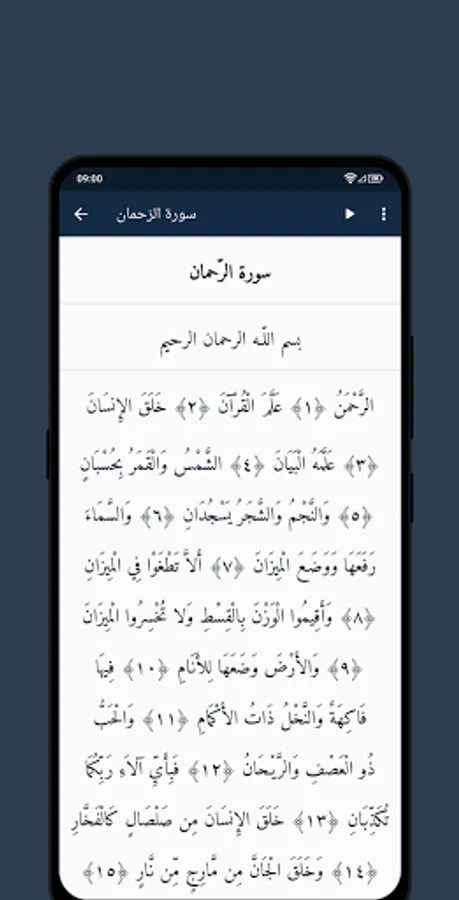 09:00
سورة الرحمان
سورة الرّحمان
بسم اللّـه الرحمان الرحيم
الرَّحْمَنُ ﴿١﴾ عَلَّمَ الْقُرْآنَ ﴿٢﴾ خَلَقَ الإِنسَانَ
﴿٣﴾ عَلَّمَهُ الْبَيَانَ ﴿٤﴾ الشَّمْسُ وَالْقَمَرُ بِحُسْبَانٍ
﴿٥﴾ وَالنَّجْمُ وَالشَّجَرُ يَسْجُدَانِ ﴿٦﴾ وَالسَّمَاءَ
رَفَعَهَا وَوَضَعَ الْمِيزَانَ ﴿٧﴾ أَلاَّ تَطْغَوْا فِي الْمِيزَانِ
﴿٨﴾ وَأَقِيمُوا الْوَزْنَ بِالْقِسْطِ وَلا تُخْسِرُوا الْمِيزَانَ
﴿٩﴾ وَالأَرْضَ وَضَعَهَا لِلأَنَامِ ﴿١٠﴾ فِيهَا
فَاكِهَةٌ وَالنَّخْلُ ذَاتُ الأَكْمَامِ ﴿١١﴾ وَالْحَبُّ
ذُو الْعَصْفِ وَالرَّيْحَانُ ﴿١٢﴾ فَبِأَيِّ آلاَءِ رَبِّكُمَا
تُكَذِّبَانِ ﴿١٣﴾ خَلَقَ الإِنسَانَ مِن صَلْصَالٍ كَالْفَخَّارِ
﴿١٤﴾ وَخَلَقَ الْجَانَّ مِن مَّارِجٍ مِّن نَّارٍ ﴿١٥﴾